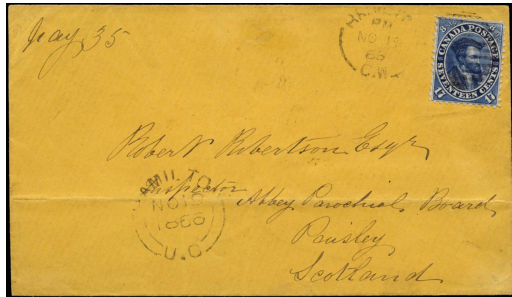 HAMILTON
PM
NO 19
66
C.W.
CANADA POSTAGE
SEVENTEEN CENTS
17 17
Robert Robertson Esqr
Inspector
Abbey Parochial Board
Paisley
Scotland
HAMILTON
NO 19
1866
U.C.